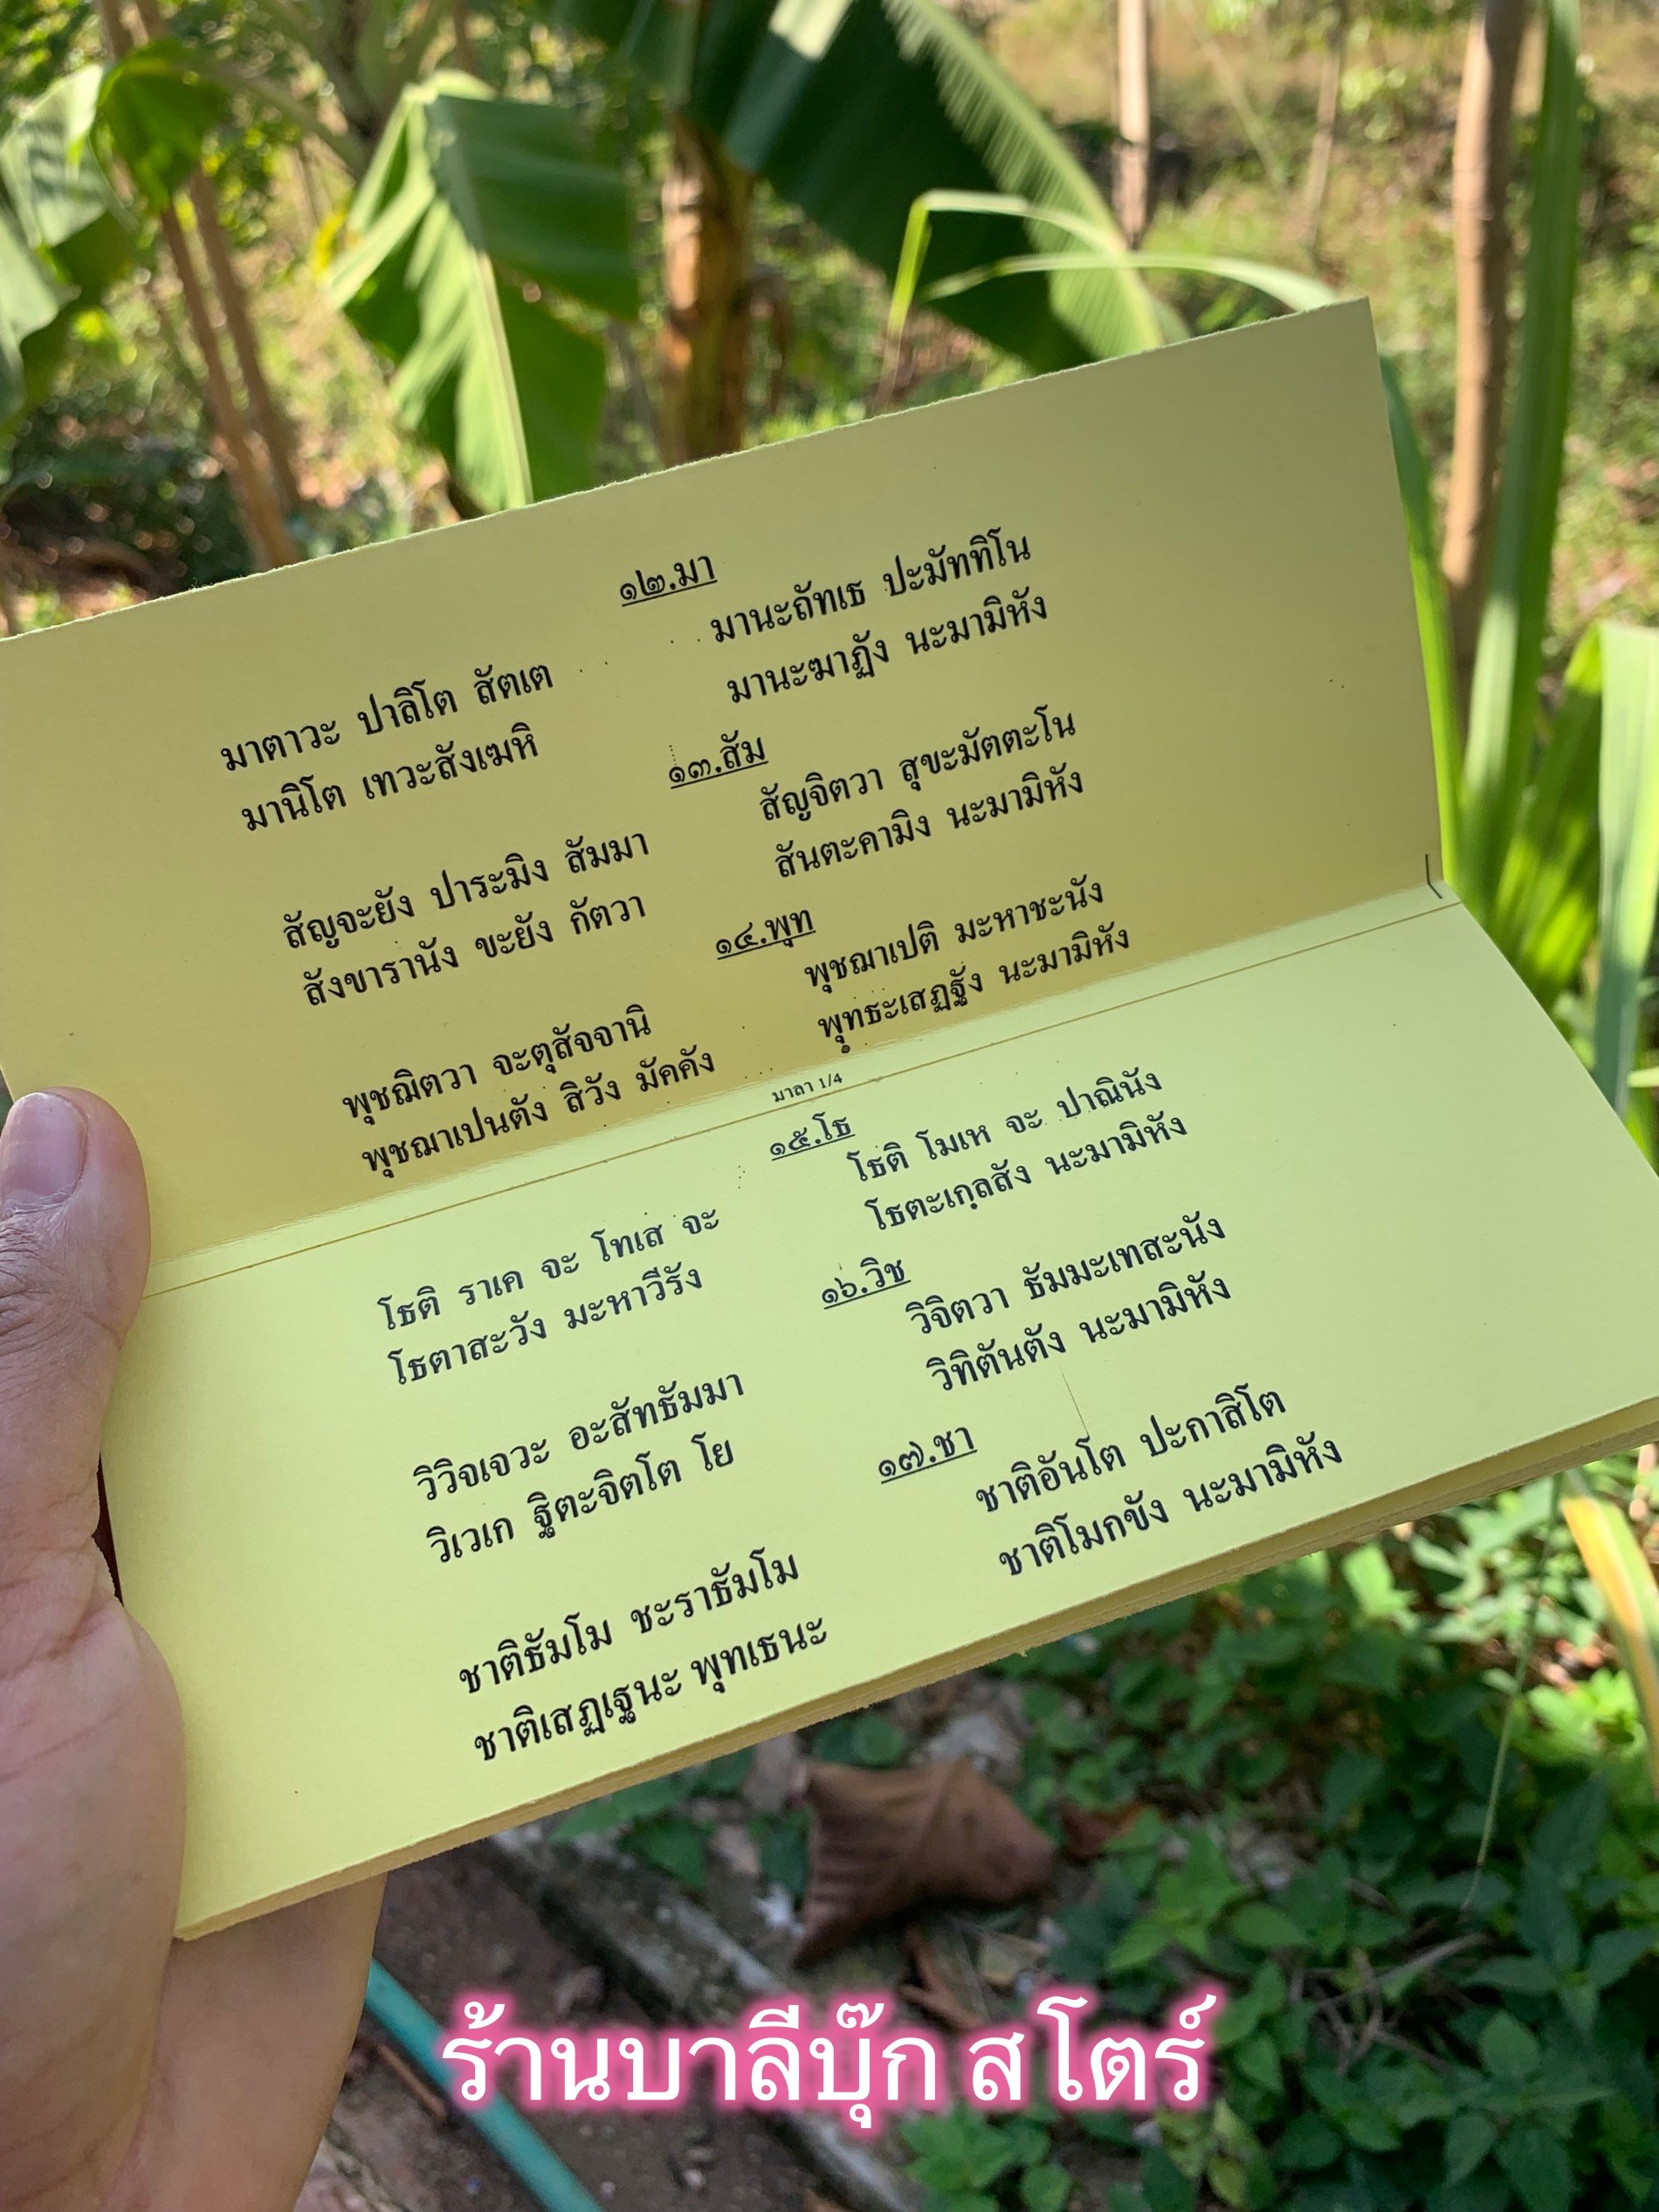 ๑๒.มา
มาตาวะ ปาลิโต สัตเต มานะถัทเธ ปะมัททิโน
มานิโต เทวะสังเฆหิ มานะฆาฏัง นะมามิหัง
๑๓.สัม
สัญจะยัง ปาระมิง สัมมา สัญจิตวา สุขะมัตตะโน
สังขารานัง ขะยัง กัตวา สันตะคามิง นะมามิหัง
๑๔.พุท
พุชฌิตวา จะตุสัจจานิ พุชฌาเปติ มะหาชะนัง
พุชฌาเปนตัง สิวัง มัคคัง พุทธะเสฏฐัง นะมามิหัง
มาลา 1/4
๑๕.โธ
โธติ ราเค จะ โทเส จะ โธติ โมเห จะ ปาณินัง
โธตาสะวัง มะหาวีรัง โธตะเกฺลสัง นะมามิหัง
๑๖.วิช
วิวิจเจวะ อะสัทธัมมา วิจิตวา ธัมมะเทสะนัง
วิเวเก ฐิตะจิตโต โย วิทิตันตัง นะมามิหัง
๑๗.ชา
ชาติธัมโม ชะราธัมโม ชาติอันโต ปะกาสิโต
ชาติเสฏเฐนะ พุทเธนะ ชาติโมกขัง นะมามิหัง
ร้านบาลีบุ๊ก สโตร์